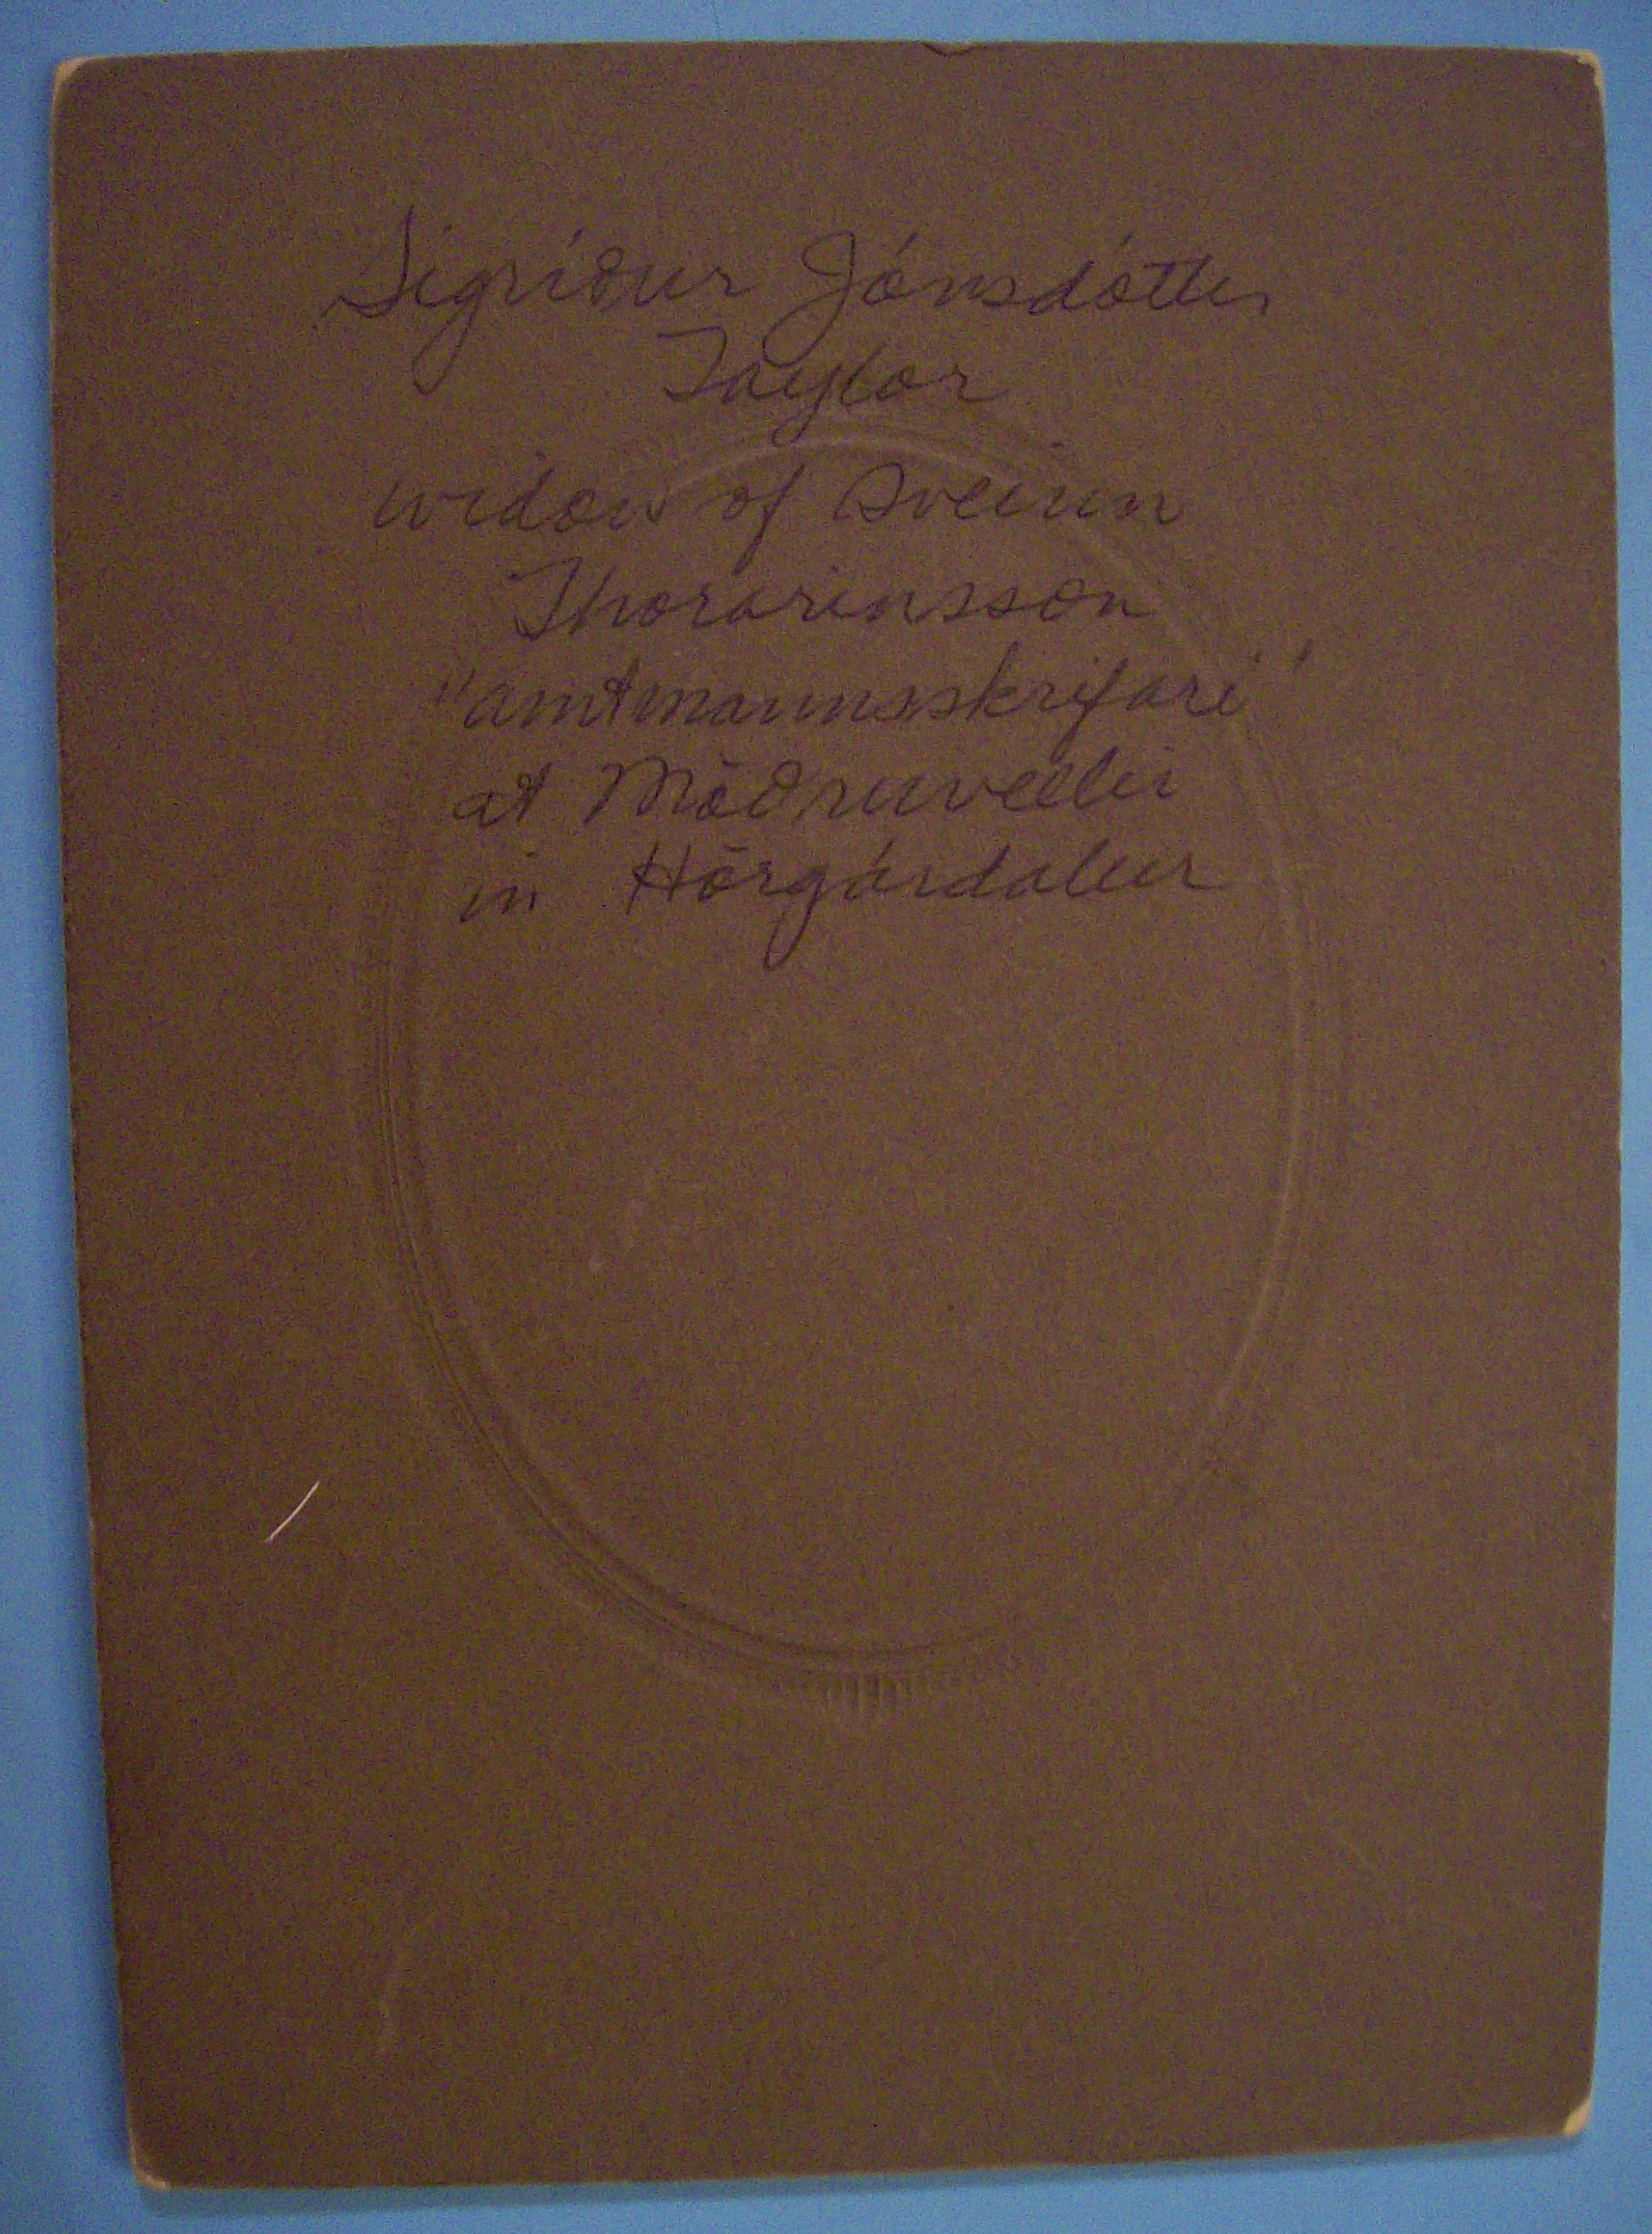 Sigríður Jónsdóttir
Taylor
widow of Sveinn
Thorarinsson
"amtmannsskrifari"
at Möðruvellir
in Hörgárdalur